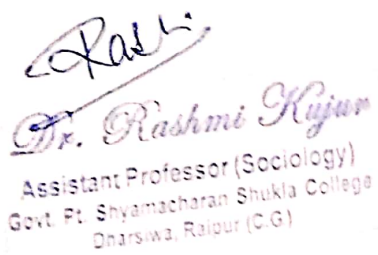 Rashmi
Dr. Rashmi Kujur
Assistant Professor (Sociology)
Govt. Pt. Shyamacharan Shukla College
Dharsiwa, Raipur (C.G)